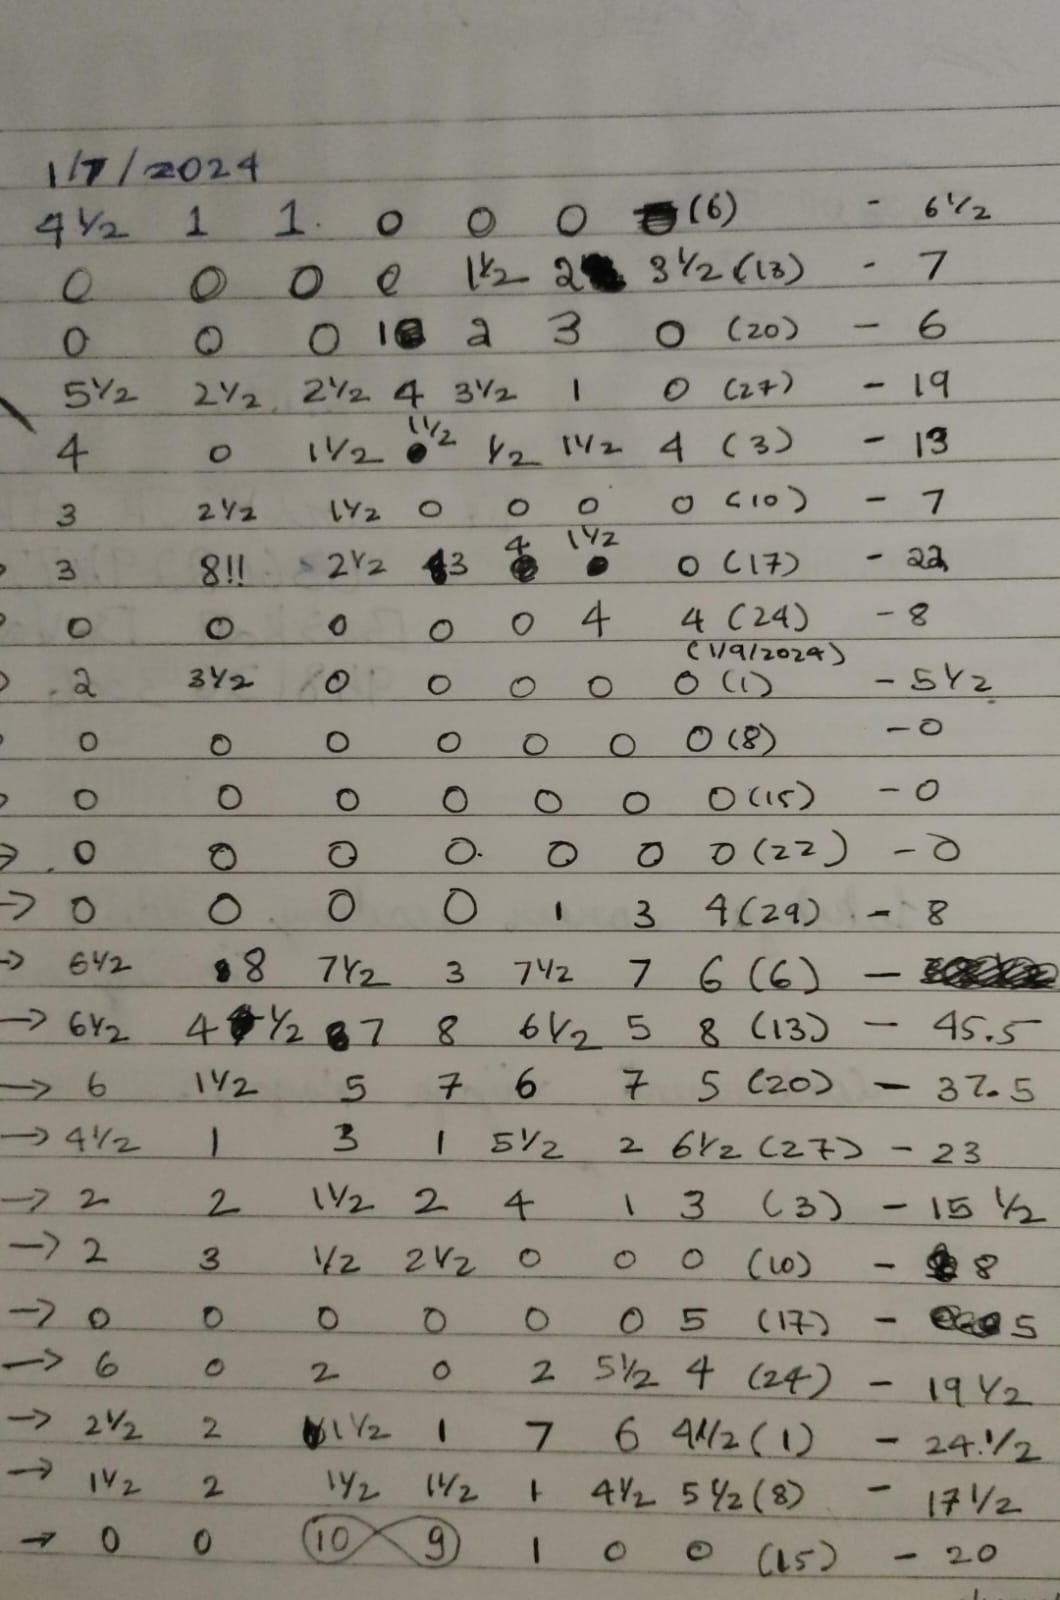 1/7/2024
4 1/2 1 1. 0 0 0 (6) - 6 1/2
0 0 0 0 1 1/2 2 3 1/2 (13) - 7
0 0 0 1 2 3 0 (20) - 6
5 1/2 2 1/2 2 1/2 4 3 1/2 1 0 (27) - 19
4 0 1 1/2 1 1/2 1/2 1 1/2 4 (3) - 13
3 2 1/2 1 1/2 0 0 0 0 (10) - 7
3 8!! 2 1/2 3 4 1 1/2 0 (17) - 22
0 0 0 0 0 4 4 (24) - 8
(1/9/2024)
2 3 1/2 0 0 0 0 0 (1) - 5 1/2
0 0 0 0 0 0 0 (8) - 0
0 0 0 0 0 0 0 (15) - 0
→ 0 0 0 0. 0 0 0 (22) - 0
→ 0 0 0 0 1 3 4 (29) - 8
→ 6 1/2 8 7 1/2 3 7 1/2 7 6 (6) -
→ 6 1/2 4 1/2 7 8 6 1/2 5 8 (13) - 45.5
→ 6 1 1/2 5 7 6 7 5 (20) - 37.5
→ 4 1/2 1 3 1 5 1/2 2 6 1/2 (27) - 23
→ 2 2 1 1/2 2 4 1 3 (3) - 15 1/2
→ 2 3 1/2 2 1/2 0 0 0 (10) - 8
→ 0 0 0 0 0 0 5 (17) - 5
→ 6 0 2 0 2 5 1/2 4 (24) - 19 1/2
→ 2 1/2 2 1 1/2 1 7 6 4 1/2 (1) - 24. 1/2
→ 1 1/2 2 1 1/2 1 1/2 1 4 1/2 5 1/2 (8) - 17 1/2
→ 0 0 10 9 1 0 0 (15) - 20